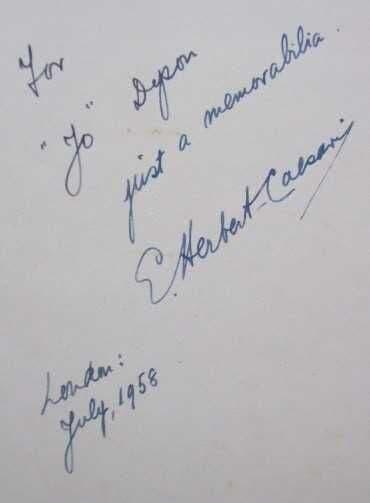 For
"Jo" Depon
just a memorabilia.
E. Herbert-Caesari
London:
July, 1958